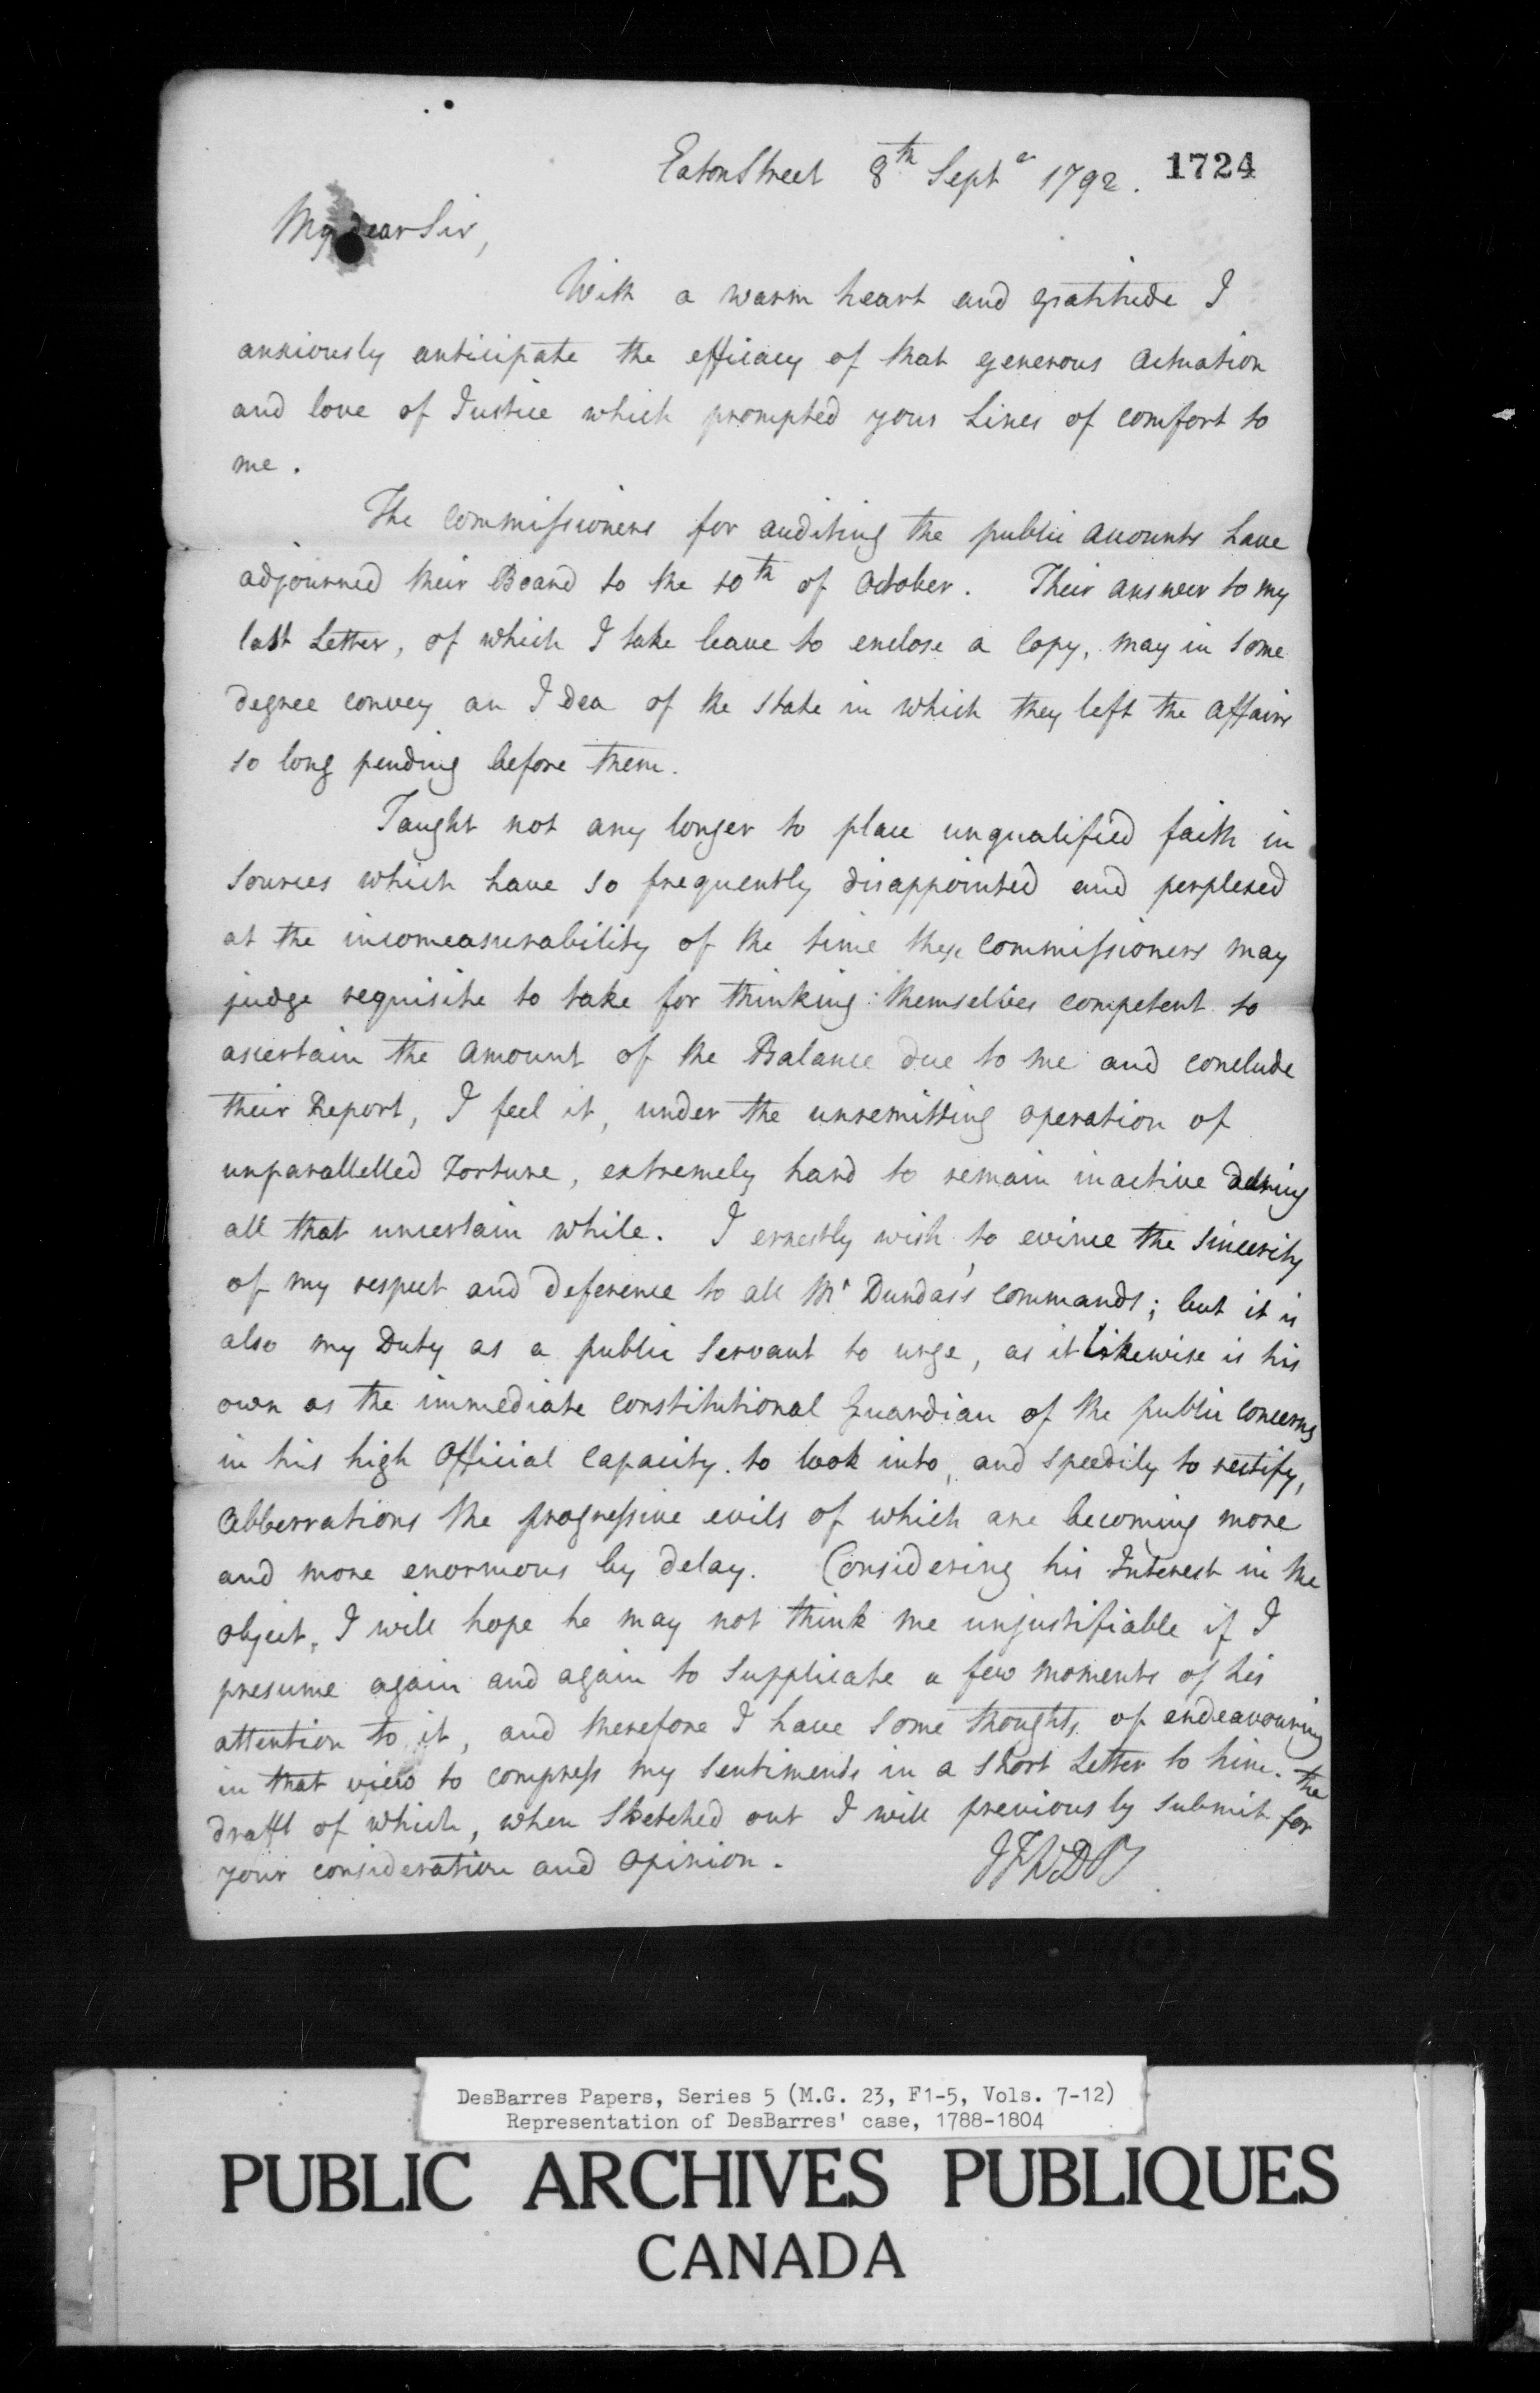 Eaton Street 8th Septr 1792. 1724
My dear Sir,
With a warm heart and gratitude I
anxiously anticipate the efficacy of that generous actuation
and love of Justice which prompted your Lines of comfort to
me.
The Commissioners for auditing the public accounts have
adjourned their Board to the 10th of October. Their answer to my
last Letter, of which I take leave to enclose a Copy, may in some
degree convey an Idea of the state in which they left the affairs
so long pending before them.
Taught not any longer to place unqualified faith in
sources which have so frequently disappointed and perplexed
at the incomeasurability of the time these Commissioners may
judge requisite to take for thinking themselves competent to
ascertain the amount of the Balance due to me and conclude
their Report, I feel it, under the unremitting operation of
unparallelled Torture, extremely hard to remain inactive during
all that uncertain while. I ernestly wish to evince the sincerity
of my respect and deference to all Mr Dundas's commands; but it is
also my Duty as a public Servant to urge, as it likewise is his
own as the immediate constitutional Guardian of the public concerns
in his high Official Capacity. to look into, and speedily to rectify,
abberrations the progressive evils of which are becoming more
and more enormous by delay. Considering his Interest in the
object, I will hope he may not think me unjustifiable if I
presume again and again to supplicate a few moments of his
attention to it, and therefore I have some thoughts of endeavouring
in that view to compress my sentiments in a short Letter to him. the
draft of which, when sketched out I will previously submit for
your consideration and opinion.
JFWDB
DesBarres Papers, Series 5 (M.G. 23, F1-5, Vols. 7-12)
Representation of DesBarres' case, 1788-1804
PUBLIC ARCHIVES PUBLIQUES
CANADA